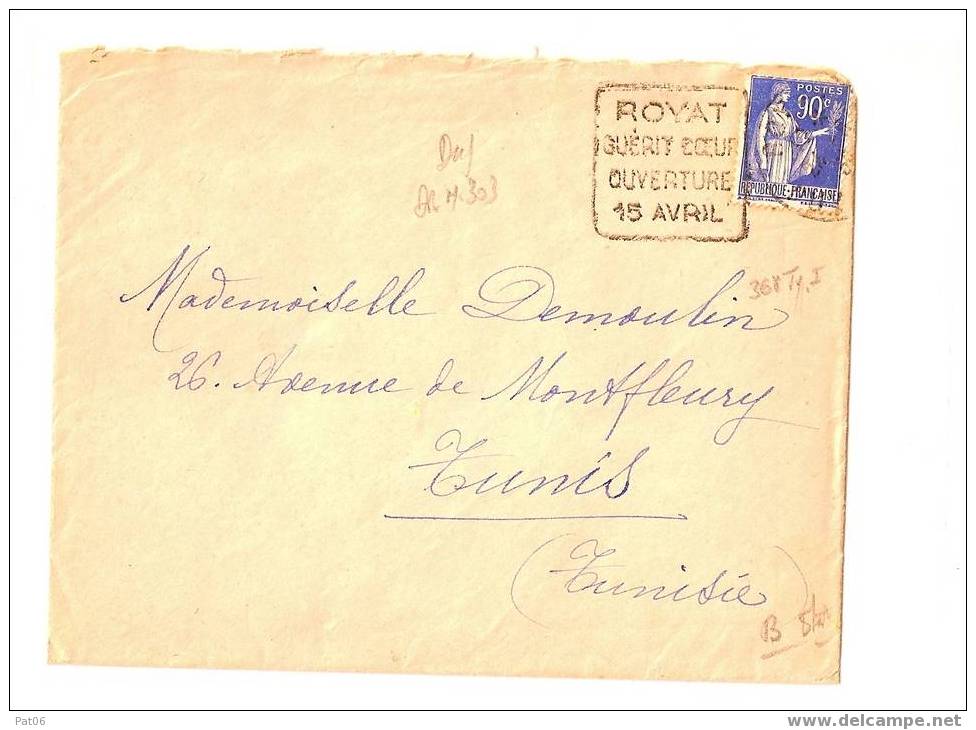 ROYAT
GUÉRIT CŒUR
OUVERTURE
15 AVRIL
POSTES
90c
REPUBLIQUE-FRANCAISE
368 Ty. I
Mademoiselle Demoulin
26. Avenue de Montfleury
Tunis
(Tunisie)
B
Pat06
www.delcampe.net